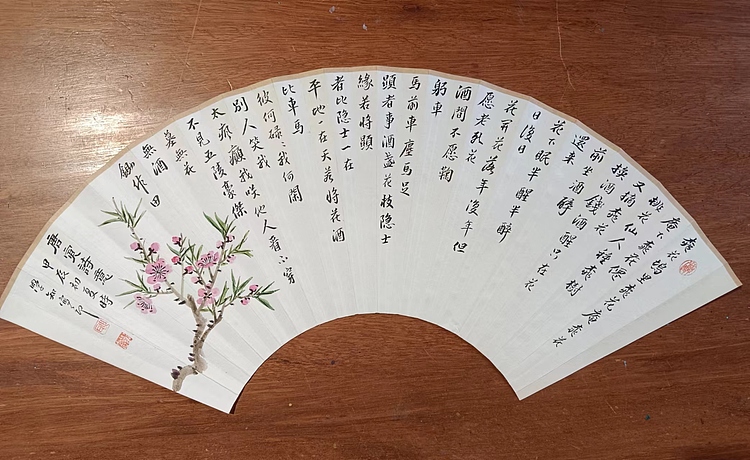 桃花塢里桃花庵桃花
庵下桃花僊
桃花仙人種桃樹
又摘桃花
換酒錢酒醒只在花
前坐酒醉
還来
花下眠半醒半醉
日復日
花開花落年復年但
愿老死花
酒間不愿鞠
躬車
馬前車塵馬足
顯者事酒盞花枝隐士
緣若將顯
者比隐士一在
平地一在天若將花酒
比車馬
彼何碌碌我何閑
別人笑我
太瘋癲我咲他人看不穿
不見五陵豪傑
墓無花
無酒
鋤作田
唐寅詩意
甲辰初夏時